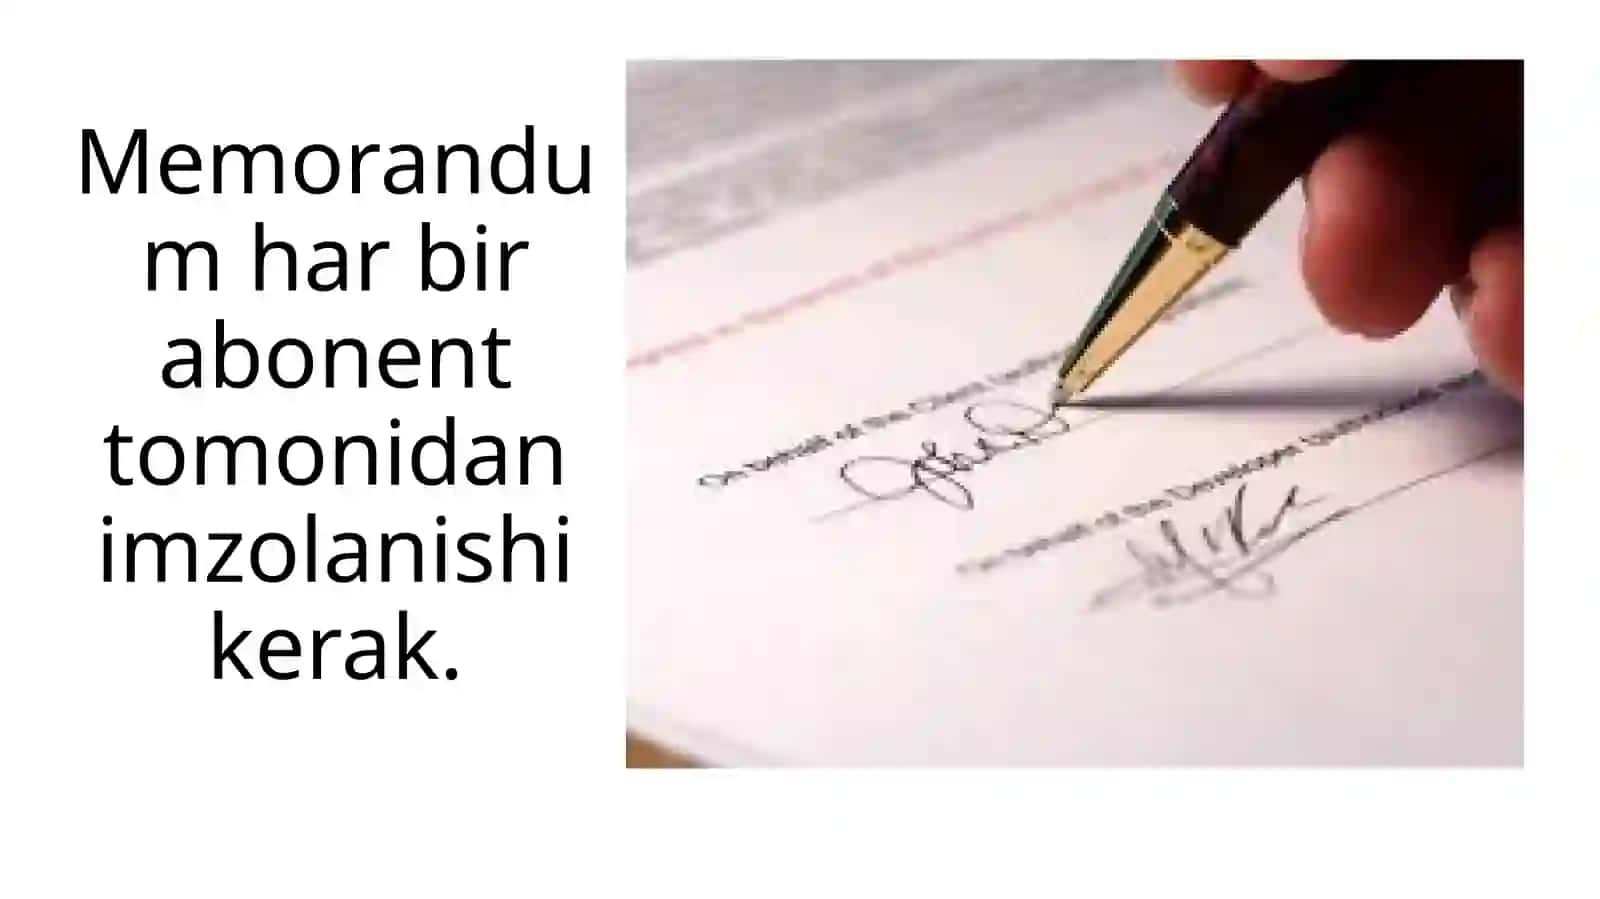 Memorandu
m har bir
abonent
tomonidan
imzolanishi
kerak.
On behalf of the Client
On behalf of the Developer